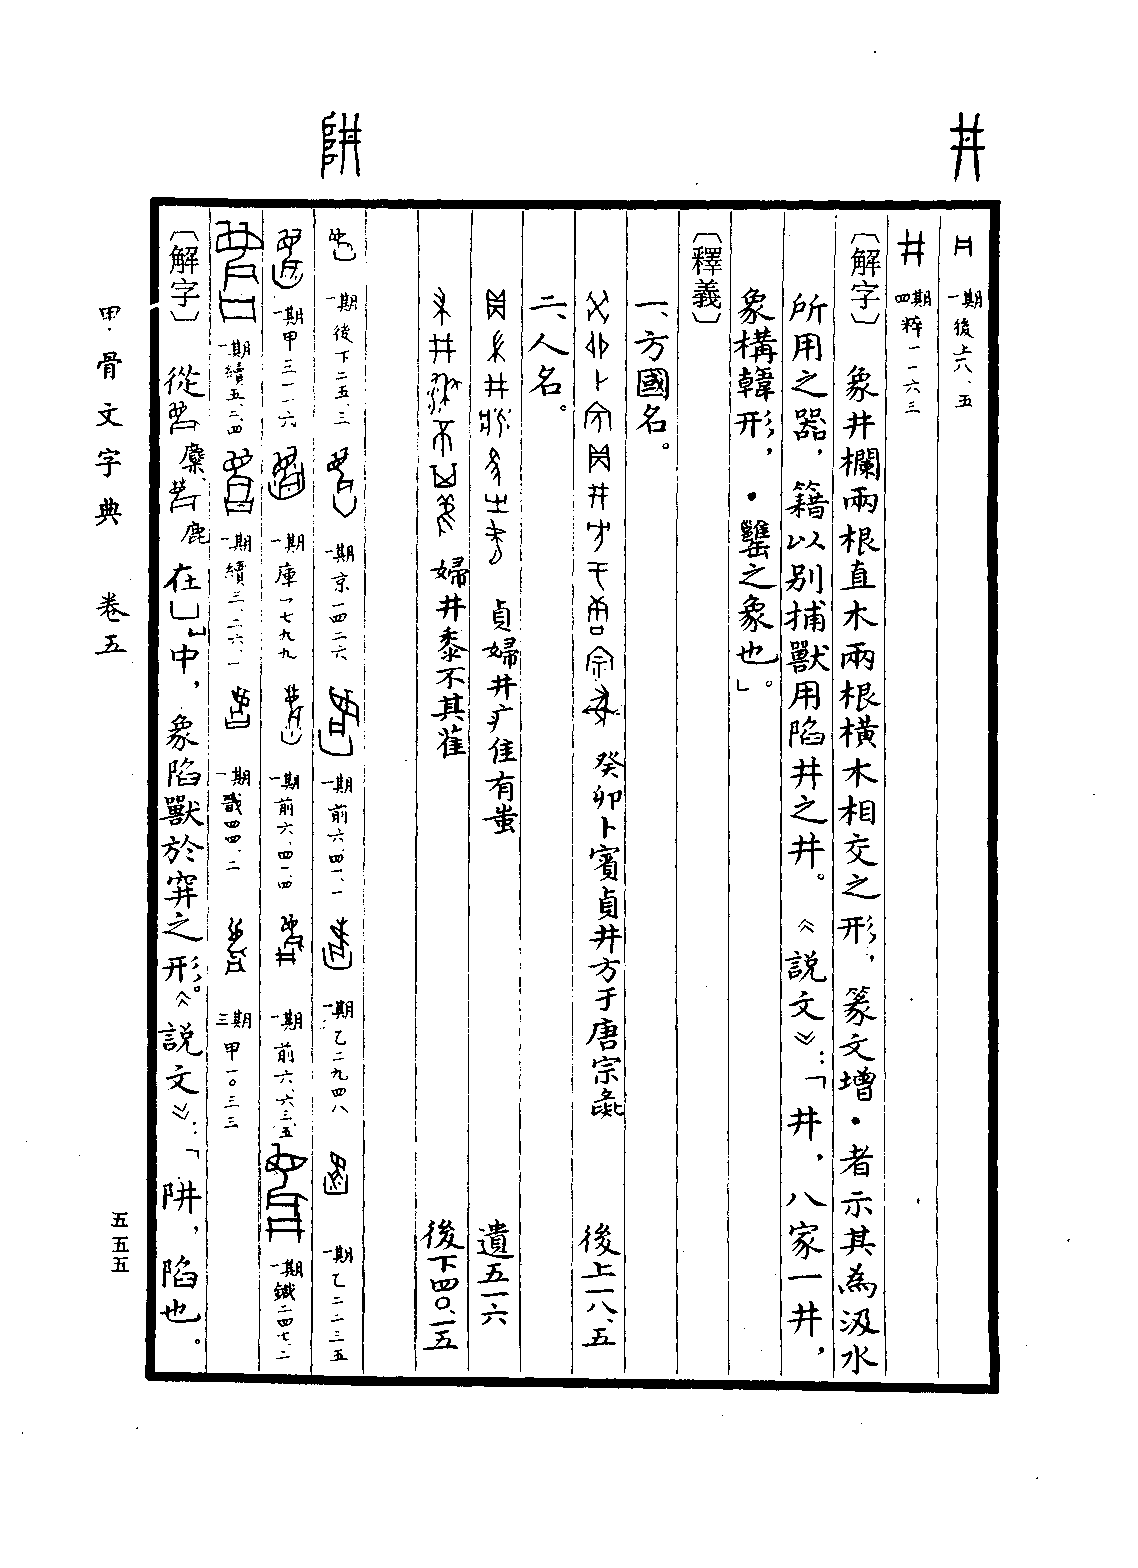 井
一期後上一八、五
四期粹一一六三
〔解字〕象井欄兩根直木兩根橫木相交之形，篆文增·者示其為汲水
所用之器，籍以別捕獸用陷井之井。《說文》：「井，八家一井，
象構韓形，·罋之象也」。
〔釋義〕
一、方國名。
癸卯卜賓貞井方于唐宗彘 後上一八、五
二、人名。
貞婦井疒隹有蚩 遺五一六
婦井黍不其雚 後下四〇、一五
阱
一期後下二五、三 一期京一四二六 一期前六、四一、一 一期乙二九四八 一期乙二二三五
一期甲三一一六 一期庫一七九九 一期前六、四一、四 一期前六、六三、五 一期鐵二四七、二
一期續五、二、四 一期續三、二六、一 一期戩四四、二 三期甲一〇三三
〔解字〕從麋鹿在凵中，象陷獸於穽之形。《說文》：「阱，陷也。
甲骨文字典 卷五
五五五